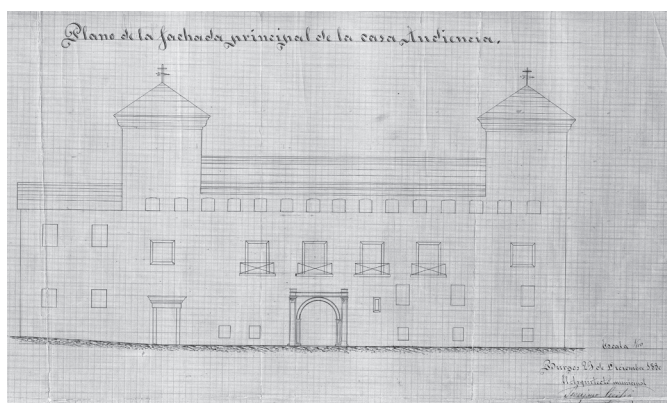 Plano de la fachada principal de la casa Audiencia.
Escala
Burgos 24 de Diciembre
El Arquitecto municipal